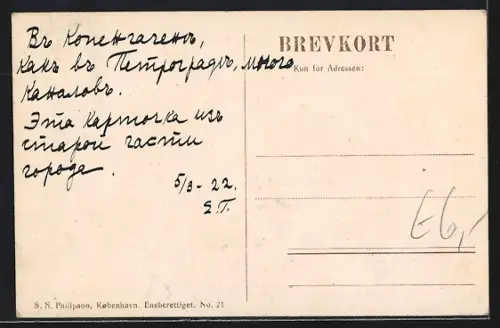 Въ Копенгагенѣ,
какъ въ Петроградѣ, много
каналовъ.
Эта карточка изъ
старой части
города.
5/3 - 22.
BREVKORT
Kun for Adressen:
E6,-
S. N. Philipson, København. Eneberettiget. No. 21